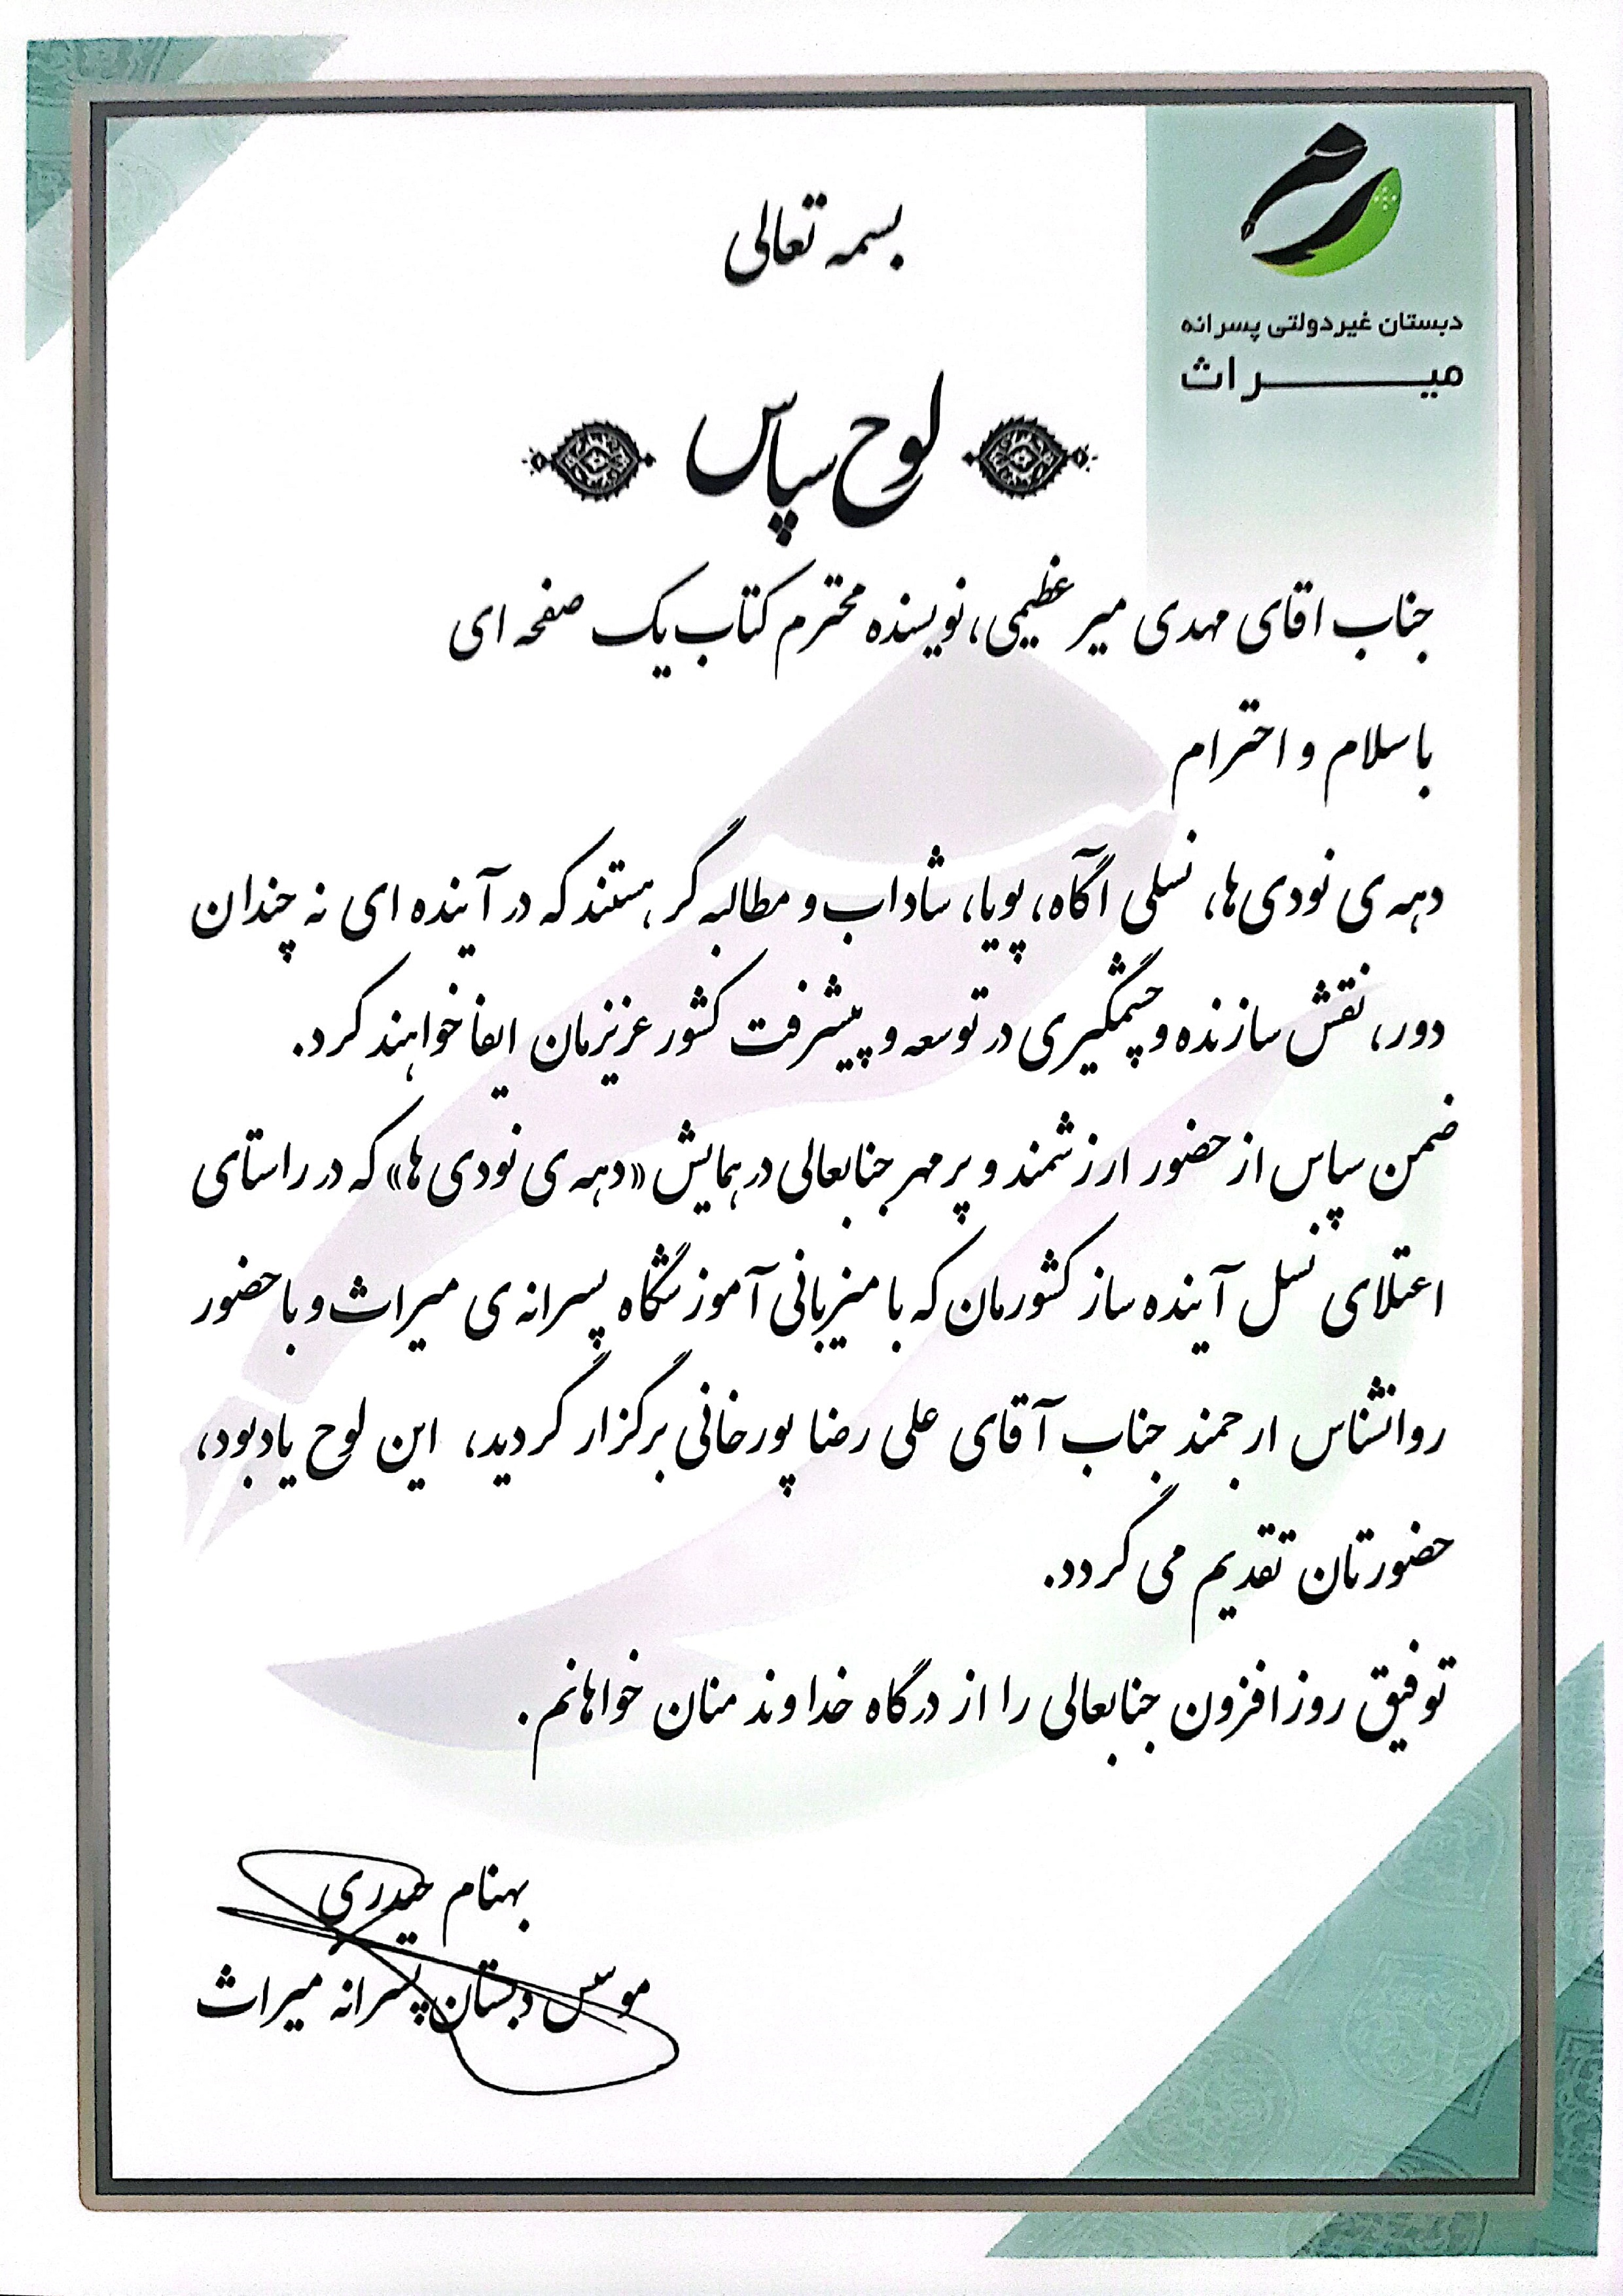 بسمه تعالی
دبستان غیر دولتی پسرانه
میراث
لوح سپاس
جناب اقای مهدی میر عظیمی، نویسنده محترم کتاب یک صفحه ای
با سلام و احترام
دهه ی نودی ها، نسلی آگاه، پویا، شاداب و مطالبه گر هستند که در آینده ای نه چندان
دور، نقش سازنده و چشمگیری در توسعه و پیشرفت کشور عزیزمان ایفا خواهند کرد.
ضمن سپاس از حضور ارزشمند و پر مهر جنابعالی در همایش «دهه ی نودی ها» که در راستای
اعتلای نسل آینده ساز کشورمان که با میزبانی آموزشگاه پسرانه ی میراث و با حضور
روانشناس ارجمند جناب آقای علی رضا پورخانی برگزار گردید، این لوح یادبود،
حضورتان تقدیم می گردد.
توفیق روز افزون جنابعالی را از درگاه خداوند منان خواهانم.
بهنام حیدری
موسس دبستان پسرانه میراث